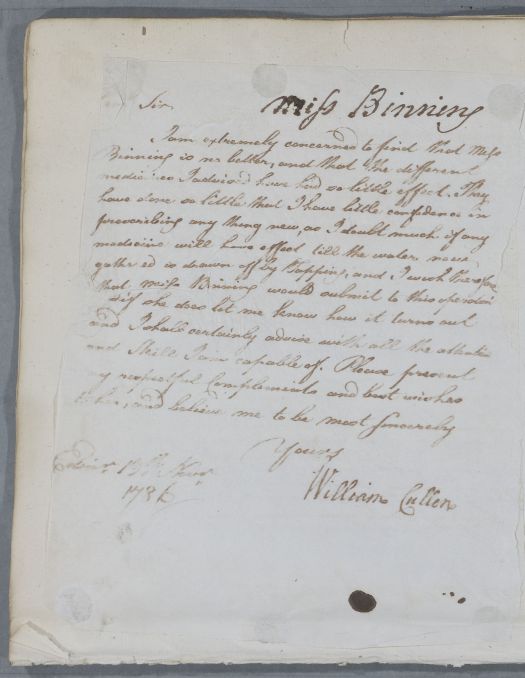 Miss Binning
Sir,
I am extremely concerned to find that Miss
Binning is no better, and that the different
medicines I advised have had so little effect. They
have done so little that I have little confidence in
prescribing any thing new, as I doubt much if any
medicine will have effect till the water now
gathered is drawn off by Tapping, and I wish therefore
that Miss Binning would submit to this operation
& if she does let me know how it turns out
and I shall certainly advise with all the attention
and Skill I am capable of. Please present
my respectful Compliments and best wishes
to her, and believe me to be most sincerely
Yours
William Cullen
Edinr. 13th
1786